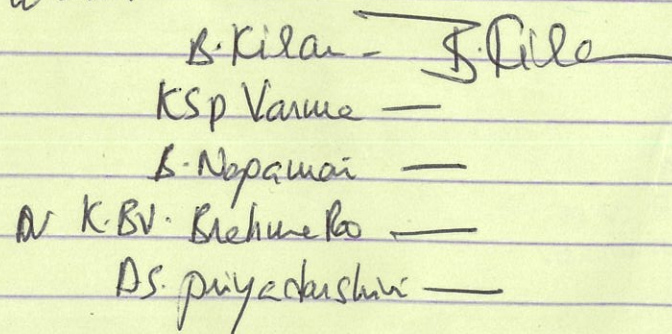 B. Kilan - B. Kila
KSP Varma —
B. Nopamai —
Dr K.BV. Brehme Rao —
DS. priyadarshini —